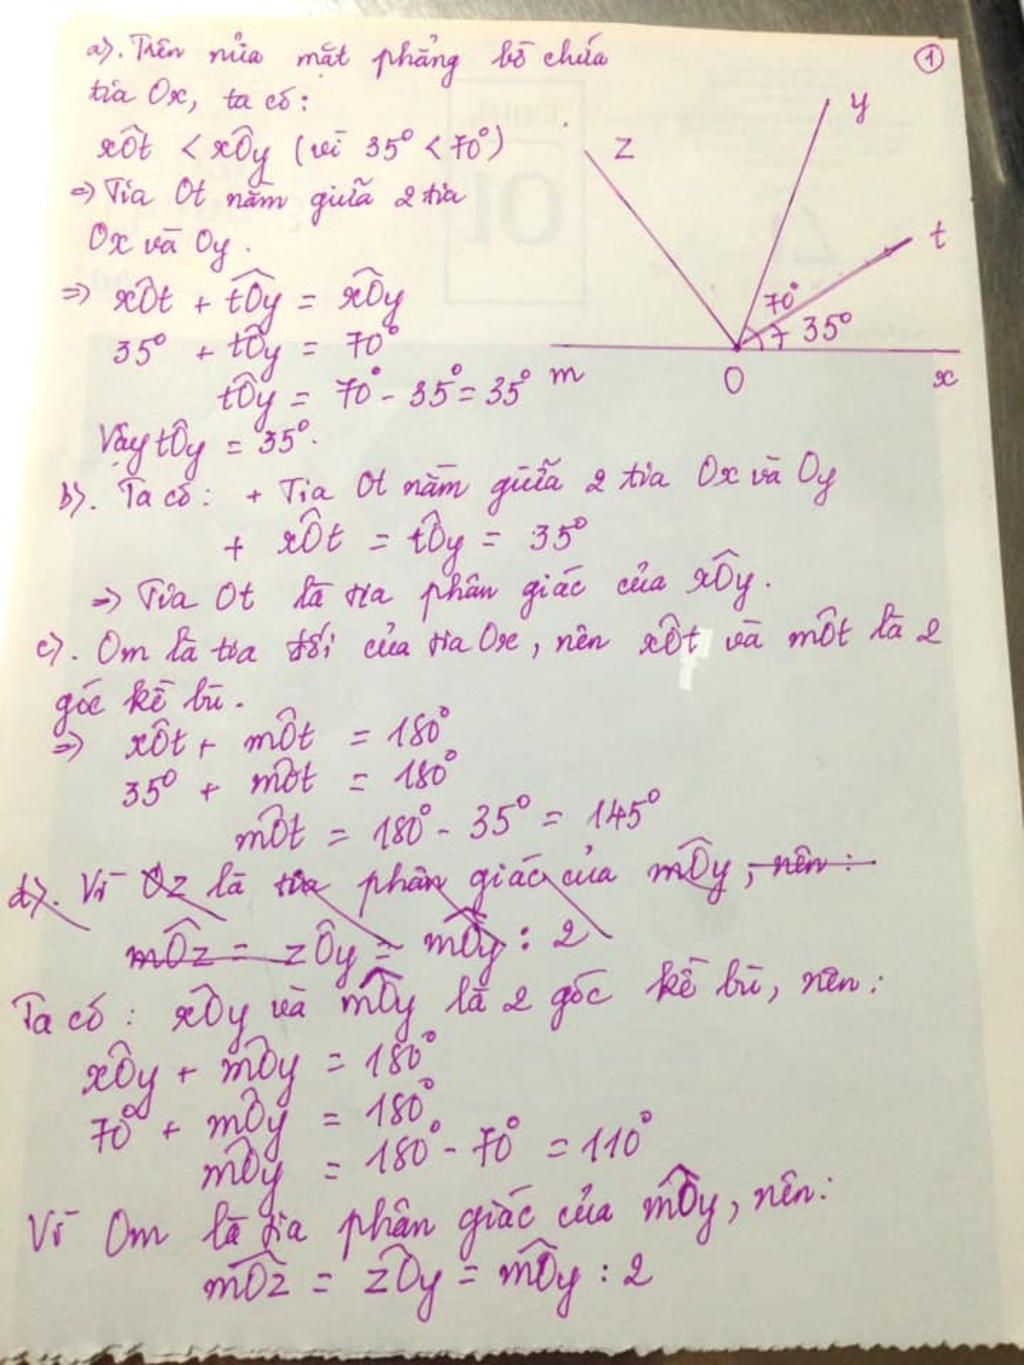 a). Trên nửa mặt phẳng bờ chứa
tia Ox, ta có:
xÔt < xÔy (vì 35° < 70°)
=> Tia Ot nằm giữa 2 tia
Ox và Oy.
=> xÔt + tÔy = xÔy
35° + tÔy = 70°
tÔy = 70° - 35° = 35°
Vậy tÔy = 35°.
1
z
y
t
70°
35°
m
O
x
b). Ta có: + Tia Ot nằm giữa 2 tia Ox và Oy
+ xÔt = tÔy = 35°
=> Tia Ot là tia phân giác của xÔy.
c). Om là tia đối của tia Ox, nên xÔt và mÔt là 2
góc kề bù.
=> xÔt + mÔt = 180°
35° + mÔt = 180°
mÔt = 180° - 35° = 145°
d). Vì Oz là tia phân giác của mÔy, nên:
mÔz = zÔy = mÔy : 2
Ta có: xÔy và mÔy là 2 góc kề bù, nên:
xÔy + mÔy = 180°
70° + mÔy = 180°
mÔy = 180° - 70° = 110°
Vì Om là tia phân giác của mÔy, nên:
mÔz = zÔy = mÔy : 2